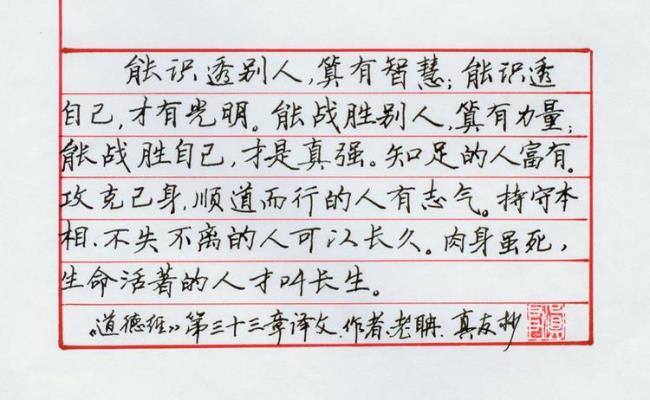 能识透别人,算有智慧;能识透
自己,才有光明。能战胜别人,算有力量;
能战胜自己,才是真强。知足的人富有。
攻克己身、顺道而行的人有志气。持守本
相、不失不离的人可以长久。肉身虽死,
生命活著的人才叫长生。
《道德经》第三十三章译文.作者:老聃.真友抄